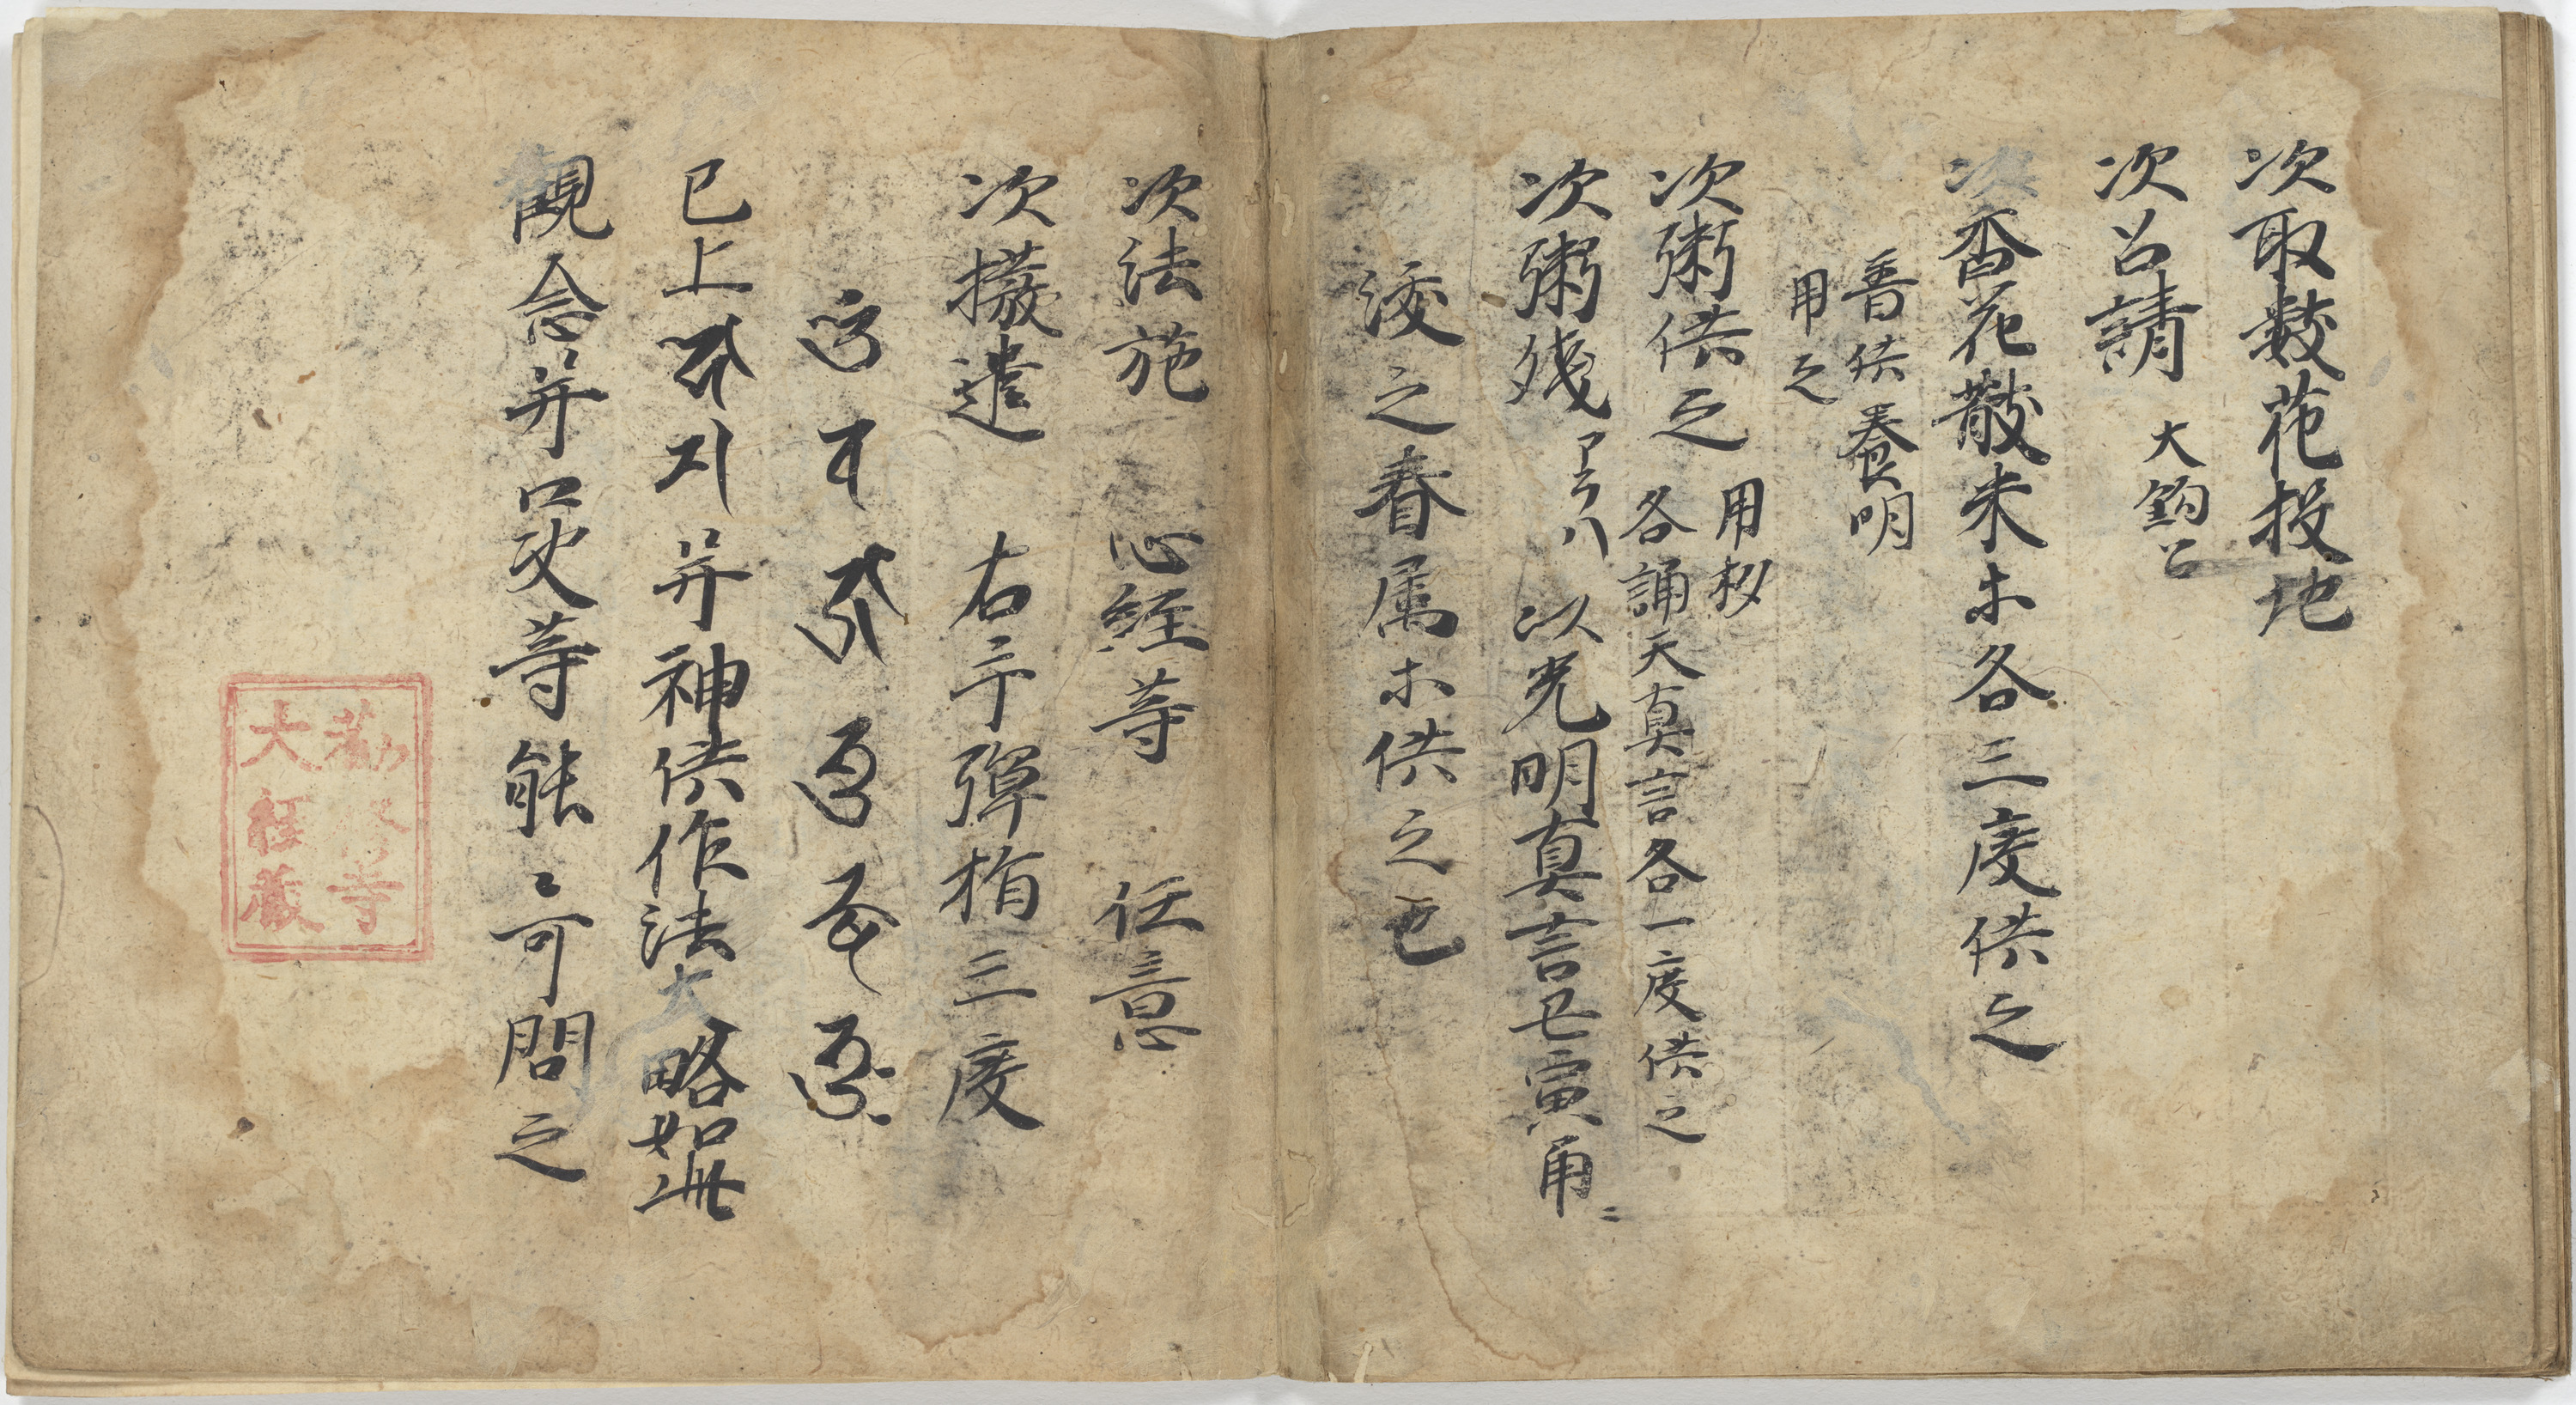 次取数花投地
次召請 大鈎召
次香花散米ホ各三度供之
普供養明
用之
次粥供之 用杓
各誦天真言各一度供之
次粥残アラハ以光明真言丑寅角ニ
之眷属ホ供之也
次法施 心経等 任意
次撥遣 右手弾指三度
已上 并神供作法大略如此
觀念并口決等能〻可問之
勧修寺
大経蔵